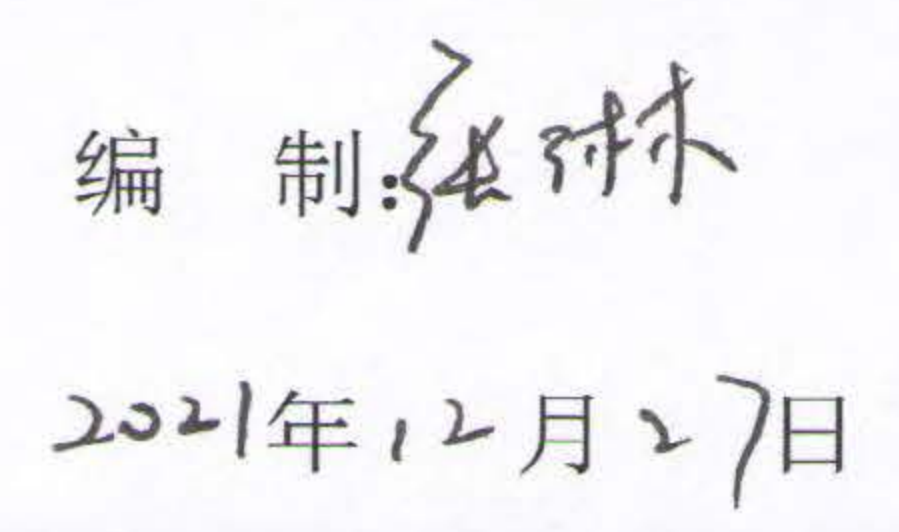 编 制:张琳
2021年12月27日